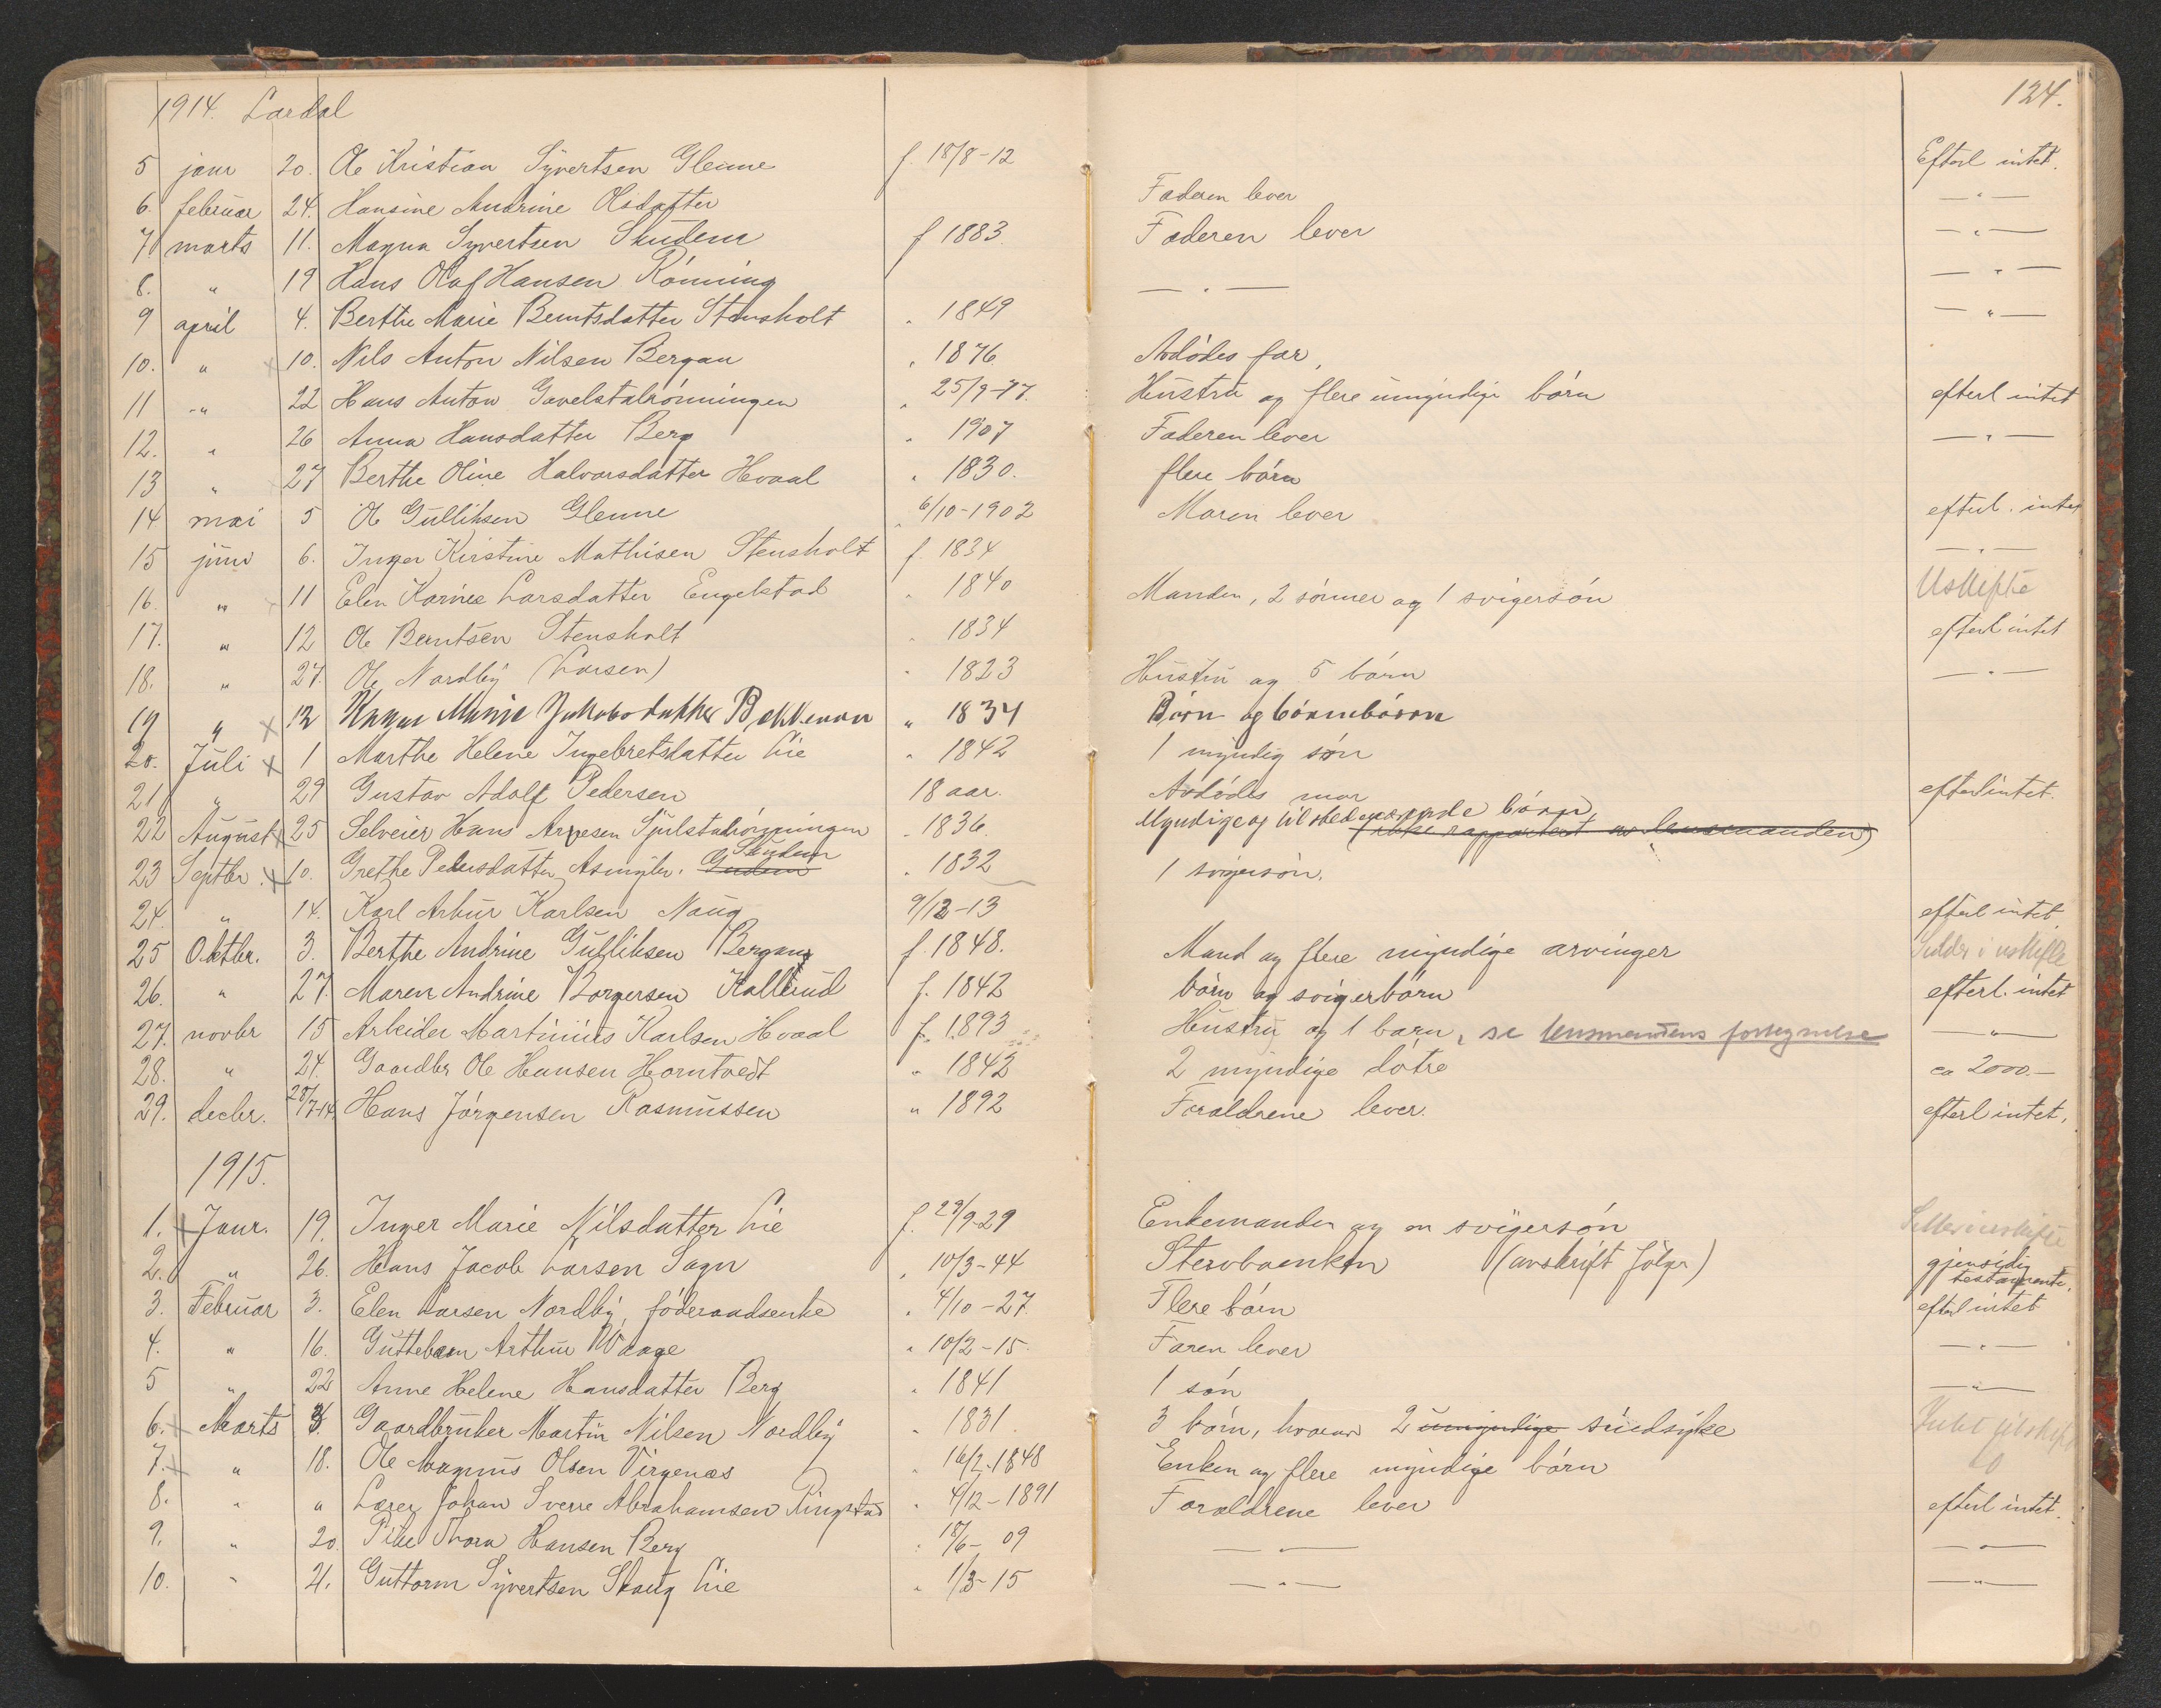 1914. Lardal
124.
5 janr 20. Ole Kristian Syvertsen Glenne f. 18/8-12 Efterl intet.
6. februar 24. Hansine Andrine Olsdatter Faderen lever — " —
7. marts 11. Magna Syvertsen Skudem f 1883 Faderen lever — " —
8. " 19 Hans Olaf Hansen Rønning — " — — " —
9 april 4. Berthe Marie Berntsdatter Stensholt " 1849 — " —
10. " × 10. Nils Anton Nilsen Bergan " 1876 Avdødes far,
11 " 22 Hans Anton Gavelstadrønningen " 25/9-77. Hustru og flere umyndige børn efterl intet
12. " 26 Anna Hansdatter Berg " 1907 Faderen lever — " —
13 " 27 Berthe Oline Halvorsdatter Hvaal " 1830. flere børn
14 mai 5 Ole Gulliksen Glenne " 6/10-1902 Moren lever efterl. intet
15 juni 6. Inger Kirstine Mathisen Stensholt f. 1834 — " —
16. " 11 Elen Karine Larsdatter Engelstad " 1840 Manden, 2 sønner og 1 svigersøn Uskifte
17. " 12 Ole Berntsen Stensholt " 1834 efterl intet
18. " 27. Ole Nordby (Larsen) " 1823 Hustru og 5 børn — " —
19 " × 12 Maria Jakobsdatter Bakkenen " 1834 Børn og børnebørn
20. Juli × 1 Marthe Helene Ingebretsdatter Lie " 1842 1 myndig søn
21 " 29 Gustav Adolf Pedersen 18 aar. Avdødes mor efterl intet.
22 August × 25 Selveier Hans Arvesen Sjulstadrønningen " 1836. Myndige og tilstedeværende børn (ikke rapportert av lensmanden)
23 Septbr. × 10. Grethe Pedersdatter Asmyhr. Gudem Skudem " 1832 1 svigersøn.
24. " 14. Karl Artur Karlsen Naug 9/12-13 efterl intet
25 Oktbr. 3. Berthe Andrine Gulliksen Bergan f. 1848. Mand og flere myndige arvinger Sidder i uskifte
26. " 27. Maren Andrine Borgersen Kallerud f. 1842 børn og svigerbørn efterl. intet
27. novbr 15 Arbeider Martinius Karlsen Hvaal f. 1893 Hustru og 1 barn, se lensmandens — " —
28. " 24. Gaardbr Ole Hansen Horntvedt " 1842 2 myndige døtre ca 2000.—
29. decbr. 28/7-14 Hans Jørgensen Rasmussen " 1892 Forældrene lever. efterl intet.
1915.
1. × Janr. 19. Inger Marie Nilsdatter Lie f. 29/9-29 Enkemanden og en svigersøn
2. " 26. Hans Jacob Larsen Sagn " 10/3-44 Stervboenken (avskrift følger) gjensidig testamente.
3. Februar 3. Elen Larsen Nordby, føderaadsenke " 4/10-27 Flere børn efterl intet
4. " 16. Guttebarn Arthur Waage " 10/2-15 Faren lever — " —
5 " 22 Anne Helene Hansdatter Berg " 1841 1 søn — " —
6. Marts 3. Gaardbruker Martin Nilsen Nordby " 1831 3 børn, hvorav 2 umyndige sindsyke
7. " 18. Ole Magnus Olsen Virgenæs " 16/2-1848 Enken og flere myndige børn
8. " " Lærer Johan Sverre Abrahamsen Ringstad " 4/12-1891 Forældrene lever efterl intet.
9. " 20. Pike Thora Hansen Berg " 18/6-09 — " — — " —
10. " 21. Guttorm Syvertsen Skaug Lie " 1/3-15 — " — — " —